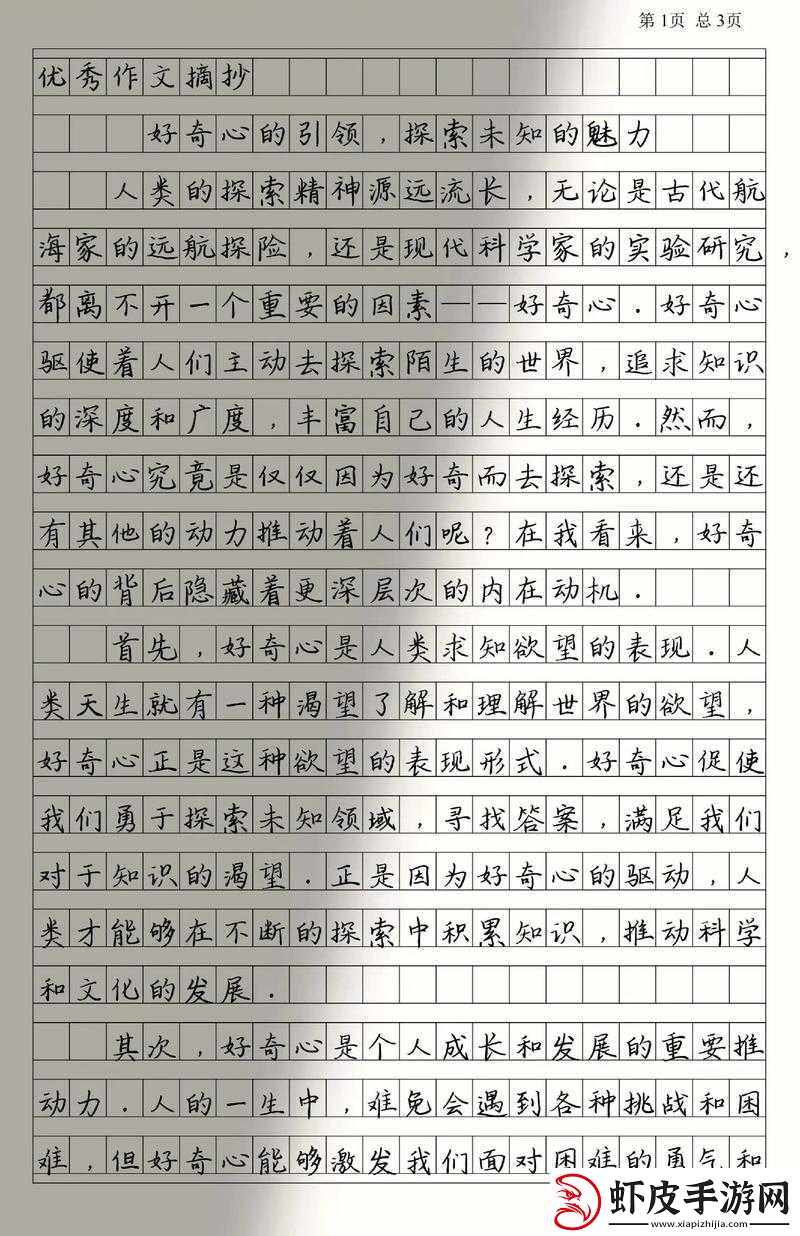 第1页 总3页
优秀作文摘抄
好奇心的引领，探索未知的魅力
人类的探索精神源远流长，无论是古代航
海家的远航探险，还是现代科学家的实验研究，
都离不开一个重要的因素——好奇心．好奇心
驱使着人们主动去探索陌生的世界，追求知识
的深度和广度，丰富自己的人生经历．然而，
好奇心究竟是仅仅因为好奇而去探索，还是还
有其他的动力推动着人们呢？在我看来，好奇
心的背后隐藏着更深层次的内在动机．
首先，好奇心是人类求知欲望的表现．人
类天生就有一种渴望了解和理解世界的欲望，
好奇心正是这种欲望的表现形式．好奇心促使
我们勇于探索未知领域，寻找答案，满足我们
对于知识的渴望．正是因为好奇心的驱动，人
类才能够在不断的探索中积累知识，推动科学
和文化的发展．
其次，好奇心是个人成长和发展的重要推
动力．人的一生中，难免会遇到各种挑战和困
难，但好奇心能够激发我们面对困难的勇气和
虾皮手游网
www.xiapizhijia.com